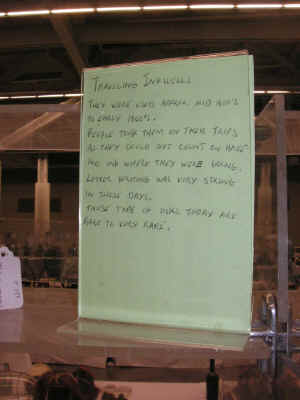 TRAVELLING INKWELLS
THEY WERE USED APPROX. MID 1800'S
TO EARLY 1900'S.
PEOPLE TOOK THEM ON THEIR TRIPS
AS THEY COULD NOT COUNT ON HAVE
ING INK WHERE THEY WERE GOING.
LETTER WRITING WAS VERY STRONG
IN THOSE DAYS.
THESE TYPE OF WELL TODAY ARE
RARE TO VERY RARE.